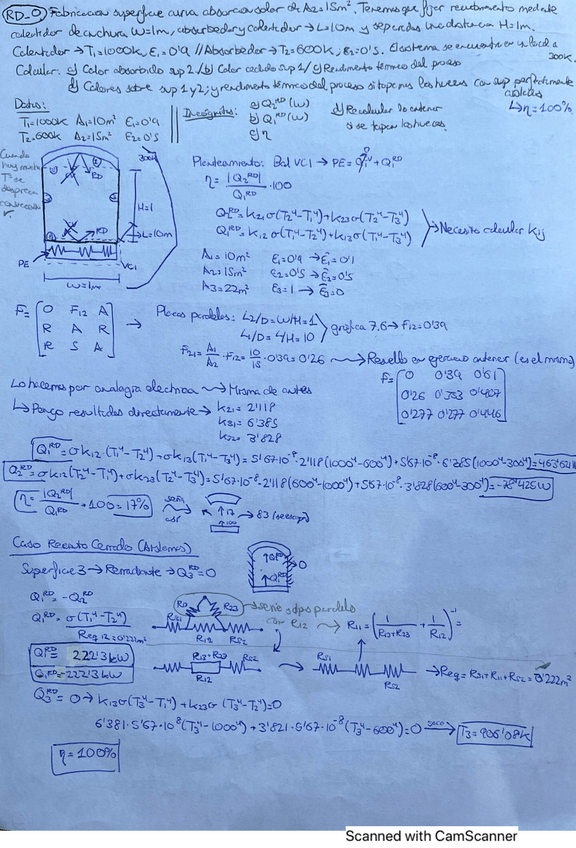 RD-0) Fabricacion superficie curva absorción solar de A2=15m². Tenemos que fijar recubrimiento mediante
calentador de anchura W=1m, absorbedor y calentador → L=10m y separadas una distancia H=1m.
Calentador → T1=1000K, ε1=0'9 // Absorbedor → T2=600K, ε2=0'5. El sistema se encuentra en un local a 300K.
Calcular: a) Calor absorbido sup 2 / b) Calor cedido sup 1 / c) Rendimiento térmico del proceso
d) Calores sobre sup 1 y 2; y rendimiento termico del proceso si tapamos los huecos con sup perfectamente aisladas
↳ η=100%
Datos:
T1=1000K A1=10m² ε1=0'9
T2=600K A2=15m² ε2=0'5
Incógnitas:
a) Q2^RD (W)
b) Q1^RD (W)
c) η
d) Recalcular lo anterior
si se tapan los huecos.
Cuando hay mucha T² se desprecia convección
300K
RD
RD
H=1
L=10m
PE
VC1
W=1m
Planteamiento: Bal VC1 → PE= + Q1^RD
η= |Q2^RD| / Q1^RD · 100
Q2^RD = k21 σ(T2⁴-T1⁴) + k23 σ(T2⁴-T3⁴)
Q1^RD = k12 σ(T1⁴-T2⁴) + k13 σ(T1⁴-T3⁴)
Necesito calcular kij
A1=10m² ε1=0'9 → ε̄1=0'1
A2=15m² ε2=0'5 → ε̄2=0'5
A3=22m² ε3=1 → ε̄3=0
F= [0 F12 A
R A R
R S A]
→ Placas paralelas: L2/D=W/H=1
L1/D=L/H=10
gráfica 7,6 → F12=0'39
F21= A1/A2 · F12 = 10/15 · 0'39 = 0'26 → Resuelto en ejercicio anterior (es el mismo)
F= [0 0'39 0'61
0'26 0'333 0'407
0'277 0'277 0'446]
Lo hacemos por analogia electrica → Misma de antes
↳ Pongo resultados directamente → k21=2'118
k31=6'385
k32=3'828
Q1^RD = σk12(T1⁴-T2⁴) + σk13(T1⁴-T3⁴) = 5'67·10⁻⁸·2'118(1000⁴-600⁴) + 5'67·10⁻⁸·6'385(1000⁴-300⁴) = 463'621W
Q2^RD = σk12(T2⁴-T1⁴) + σk23(T2⁴-T3⁴) = 5'67·10⁻⁸·2'118(600⁴-1000⁴) + 5'67·10⁻⁸·3'828(600⁴-300⁴) = -78'425W
η= |Q2^RD| / Q1^RD · 100 = 17%
sería así
↑17
↑100
→ 83 (se escapa)
Caso Recinto Cerrado (Aislamos)
Superficie 3 → Rerradiante → Q3^RD=0
↑Q2^RD
↑Q1^RD
0
Q1^RD = -Q2^RD
Q1^RD = σ(T1⁴-T2⁴) / Req12=0'222m²
RS1 R13 R23 R12 RS2
→ serie y dps paralelo con R12 → R11 = (1/(R13+R23) + 1/R12)⁻¹ =
Q1^RD = 222'3kW
Q2^RD = -222'3kW
R13+R23 RS2
R12
RS1
RS2
→ Req = RS1+R11+RS2 = 0'222m²
Q3^RD = 0 → k13σ(T3⁴-T1⁴) + k23σ(T3⁴-T2⁴) = 0
6'381·5'67·10⁻⁸(T3⁴-1000⁴) + 3'821·5'67·10⁻⁸(T3⁴-600⁴) = 0 → T3=906'08K
η=100%
Scanned with CamScanner